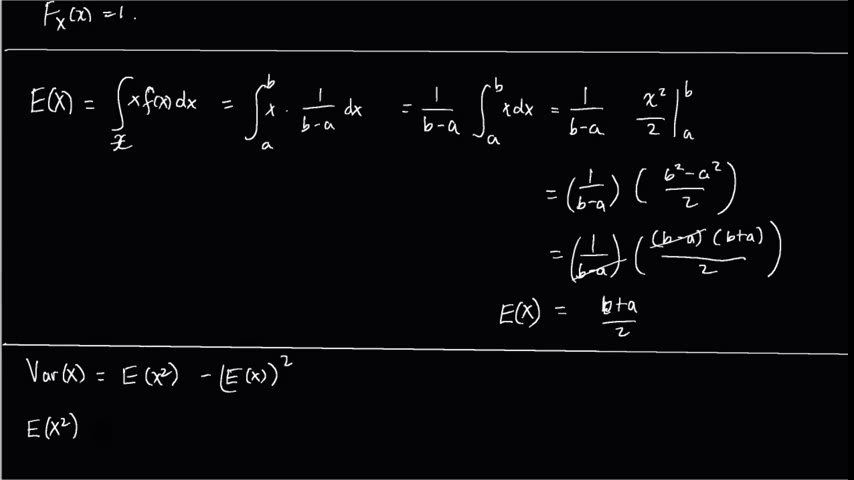 F_X(x) = 1.
E(X) = ∫_𝒳 x f(x) dx = ∫_a^b x · 1/(b-a) dx = 1/(b-a) ∫_a^b x dx = 1/(b-a) x²/2 |_a^b
= (1/(b-a)) ( (b² - a²)/2 )
= (1/(b-a)) ( (b-a)(b+a)/2 )
E(X) = (b+a)/2
Var(X) = E(X²) - (E(X))²
E(X²)